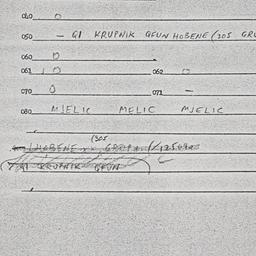 040 O
050 - GI KRUPNIK GFUN HOBENE (305 GRU
060 O
061 1 O 062 O
070 O 071 -
080 MIELIC MELIC MJELIC
(305
HOBENE
GI KRUPNIK GFUN)